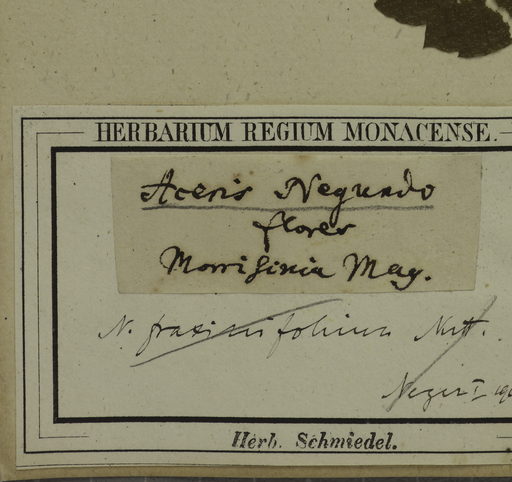 HERBARIUM REGIUM MONACENSE.
Aceris Negundo
flores
Morrisinia May.
N. fraxinifolium Nutt.
Neger I 19
Herb. Schmiedel.